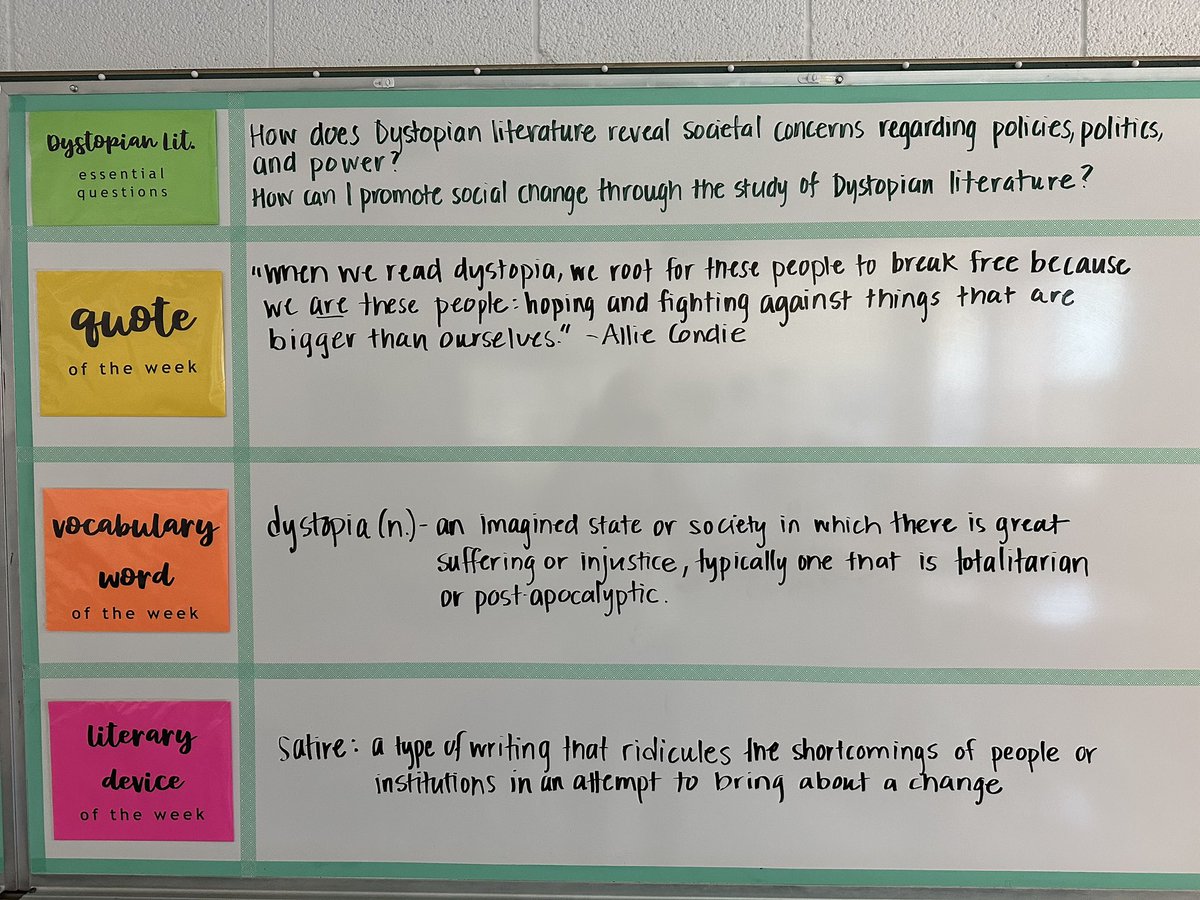 Dystopian Lit.
essential
questions
How does Dystopian literature reveal societal concerns regarding policies, politics,
and power?
How can I promote social change through the study of Dystopian literature?
quote
of the week
"When we read dystopia, we root for these people to break free because
we are these people: hoping and fighting against things that are
bigger than ourselves." -Allie Condie
vocabulary
word
of the week
dystopia (n.) - an imagined state or society in which there is great
suffering or injustice, typically one that is totalitarian
or post-apocalyptic.
literary
device
of the week
Satire: a type of writing that ridicules the shortcomings of people or
institutions in an attempt to bring about a change